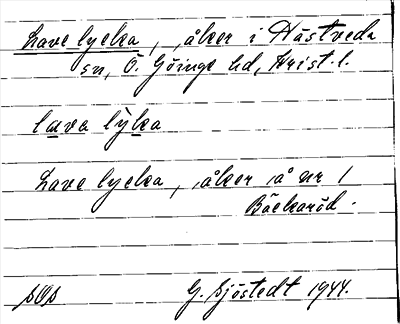 Lave lycka, åker i Hästveda
sn, Ö. Göinge hd, Krist. l.
lava lỳka
Lave lycka, åker å nr 1
Bäckaröd.
SOS
G. Sjöstedt 1944.